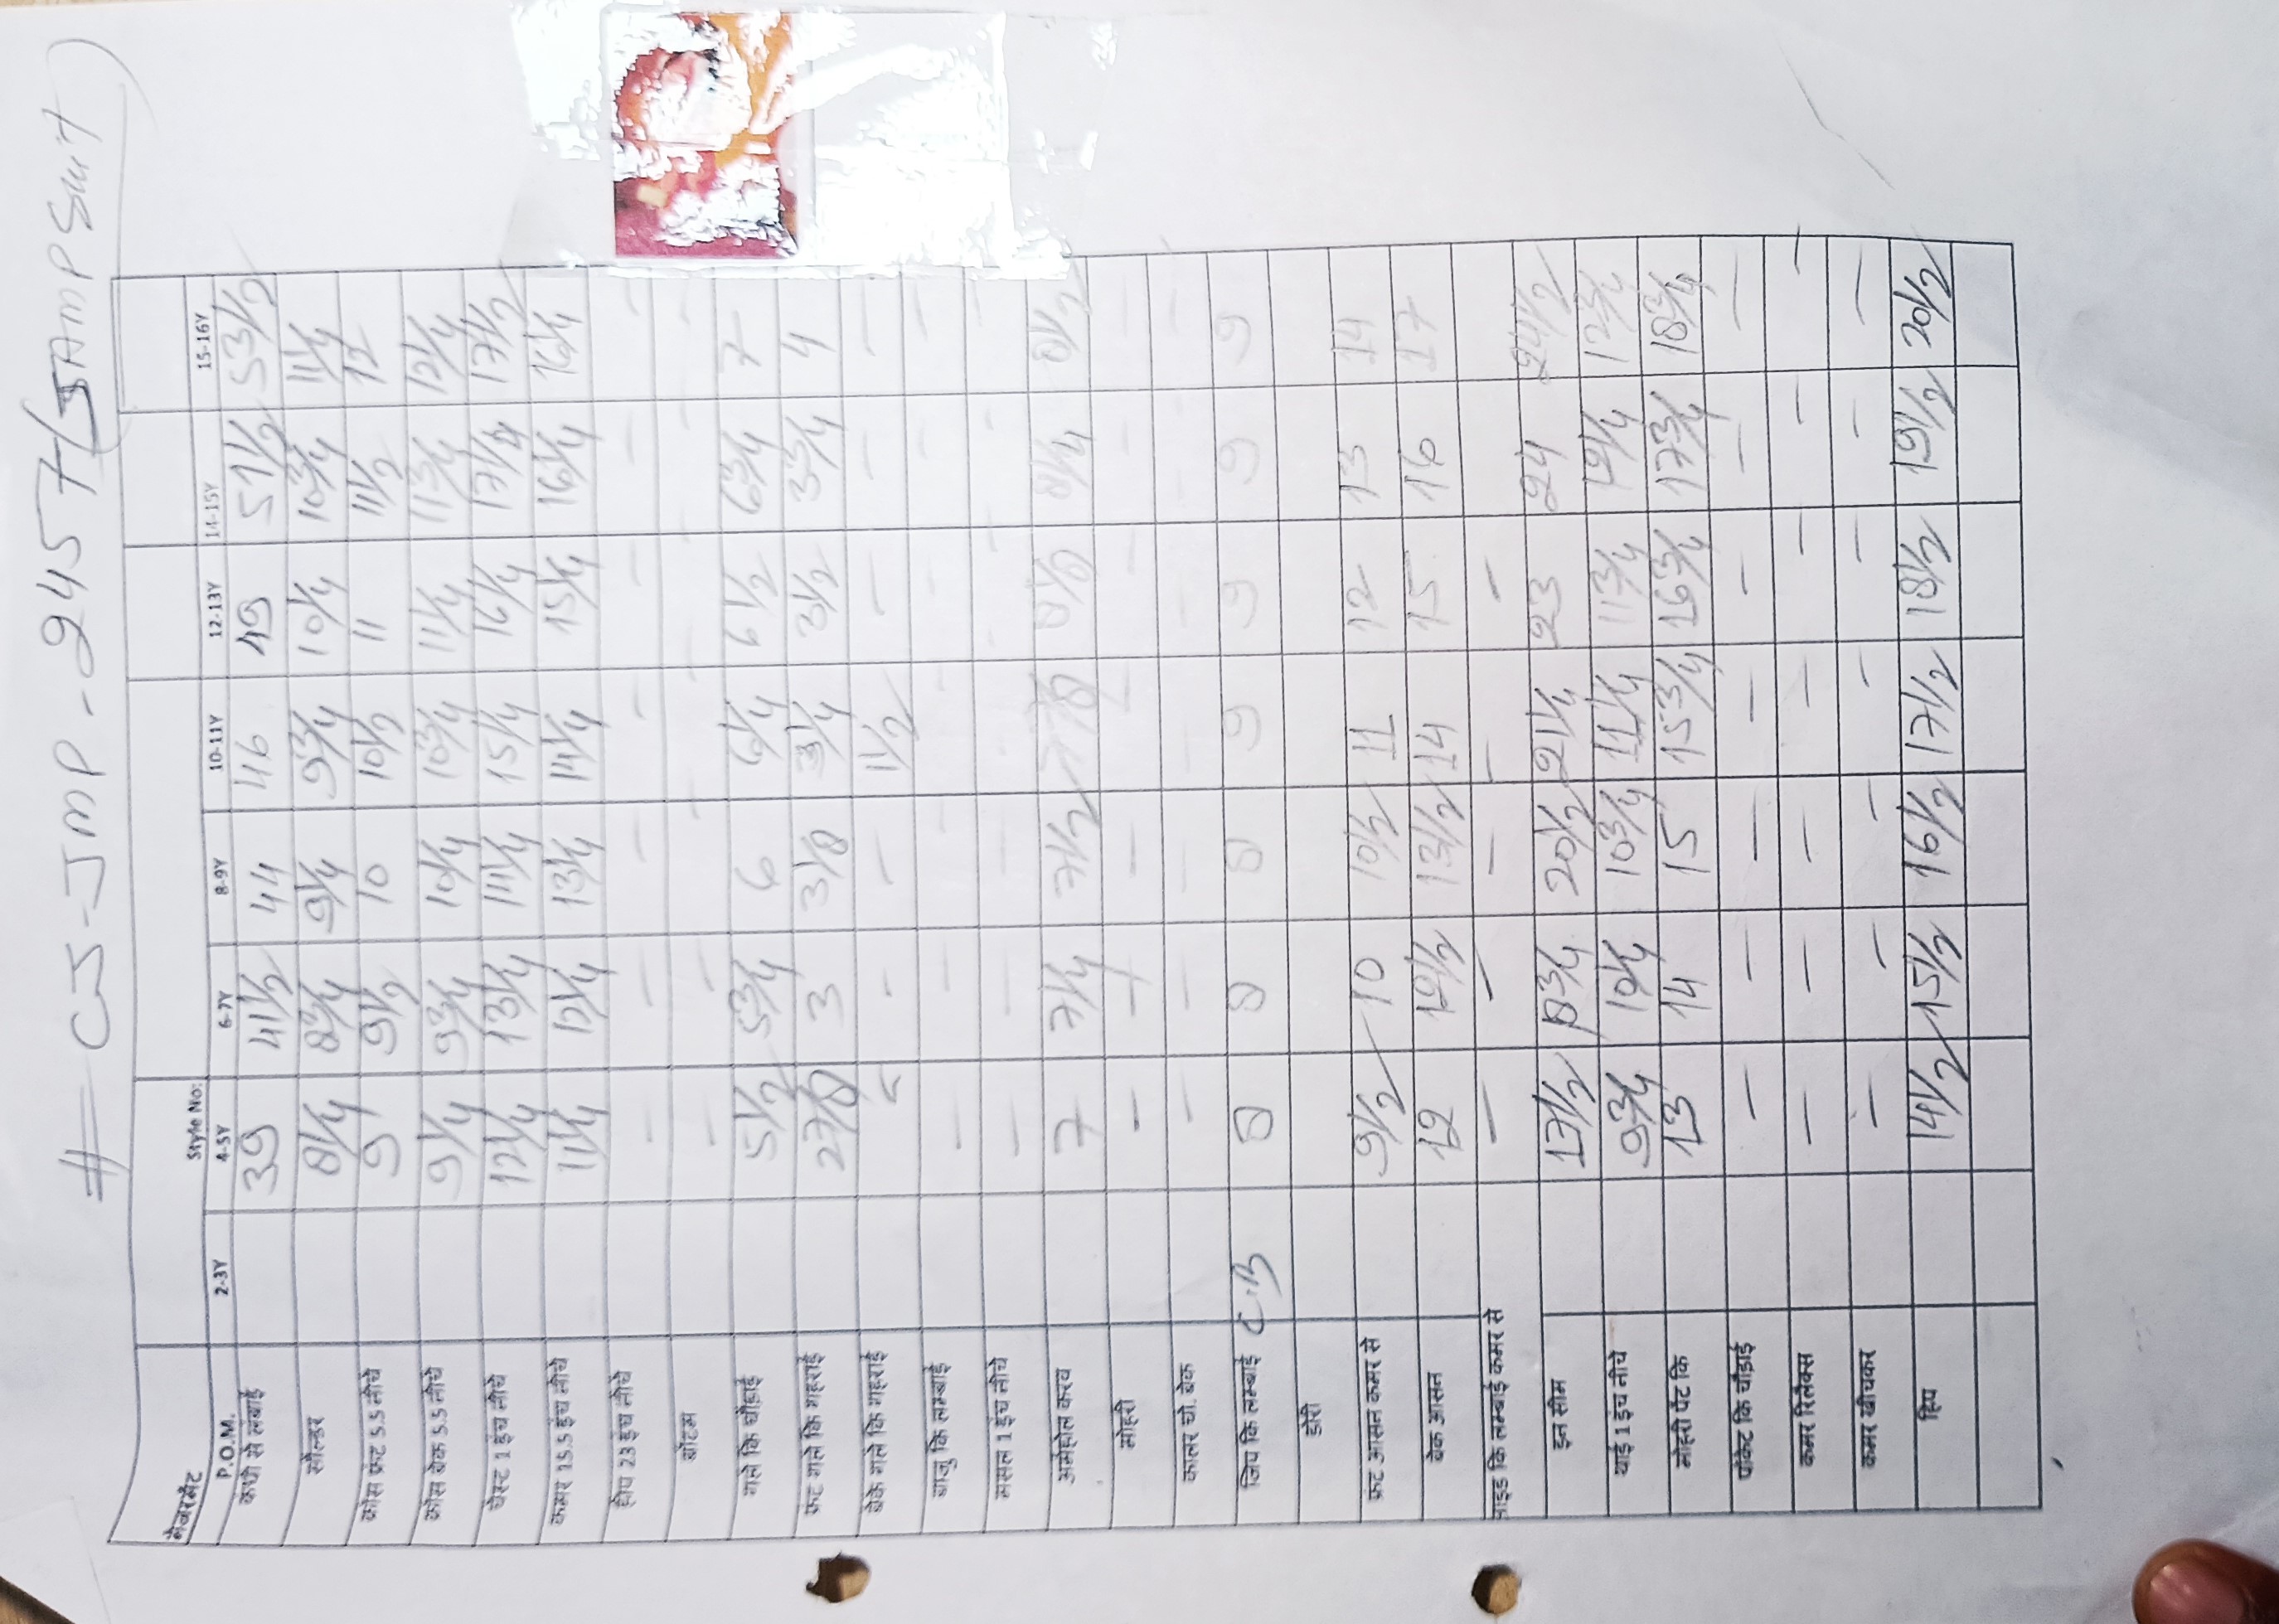 # CJ-JMP-245 T (JAMP Suit)
मैजरमेंट Style No:
P.O.M. 2-3Y 4-5Y 6-7Y 8-9Y 10-11Y 12-13Y 14-15Y 15-16Y
कंधो से लंबाई 39 41 1/2 44 46 49 51 1/2 53 1/2
सोल्डर 8 1/4 8 3/4 9 1/4 9 3/4 10 1/4 10 3/4 11 1/4
क्रोस फ्रंट 5.5 नीचे 9 9 1/2 10 10 1/2 11 11 1/2 12
क्रोस बेक 5.5 नीचे 9 1/4 9 3/4 10 1/4 10 3/4 11 1/4 11 3/4 12 1/4
चेस्ट 1 इंच नीचे 12 1/4 13 1/4 14 1/4 15 1/4 16 1/4 17 1/4 17 1/2
कमर 15.5 इंच नीचे 11 1/4 12 1/4 13 1/4 14 1/4 15 1/4 16 1/4 16 1/4
हीप 23 इंच नीचे - - - - - - -
बॉटम - - - - - - -
गले कि चौड़ाई 5 1/2 5 3/4 6 6 1/4 6 1/2 6 3/4 7
फ्रंट गले कि गहराई 2 7/8 3 3 1/8 3 1/4 3 1/2 3 3/4 4
बेक गले कि गहराई - - 1 1/2 - - -
बाजु कि लम्बाई - - - - - - -
मसल 1 इंच नीचे - - - - - - -
अर्महोल करव 7 7 1/4 7 1/2 7 7/8 8 1/8 8 1/4 8 1/2
मोहरी - - - - - - -
कालर चो. बेक - - - - - - -
जिप कि लम्बाई C.B 8 8 8 9 9 9 9
डोरी
फ्रंट आसन कमर से 9 1/2 10 10 1/2 11 12 13 14
बेक आसन 12 12 1/2 13 1/2 14 15 16 17
साइड कि लम्बाई कमर से - - - - -
इन सीम 17 1/2 18 3/4 20 1/2 21 1/4 23 24 24 1/2
थाई 1 इंच नीचे 9 3/4 10 1/4 10 3/4 11 1/4 11 3/4 12 1/4 12 3/4
मोहरी पेंट कि 13 14 15 15 3/4 16 3/4 17 3/4 18 3/4
पॉकेट कि चौड़ाई - - - - - - -
कमर रिलैक्स - - - - - - -
कमर खीचकर - - - - - - -
हिप 14 1/2 15 1/2 16 1/2 17 1/2 18 1/2 19 1/2 20 1/2